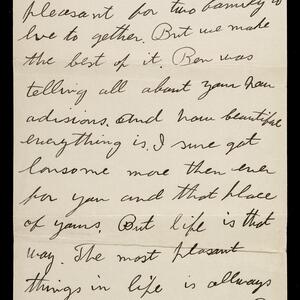 pleasant for two family to
live to gether. But we make
the best of it. Ben was
telling all about your new
adisions. and how beautiful
everything is. I sure got
lonsome more then ever
for you and that place
of yours. But life is that
way. The most pleasant
things in life is allways